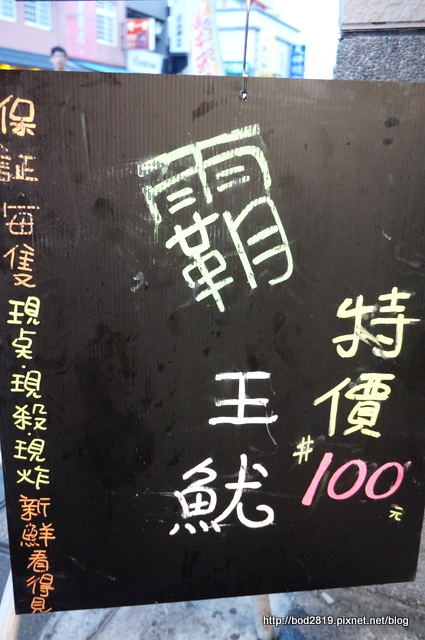 特價
#100元
霸王魷
保証每隻現点.現殺.現炸新鮮看得見
http://bod2819.pixnet.net/blog